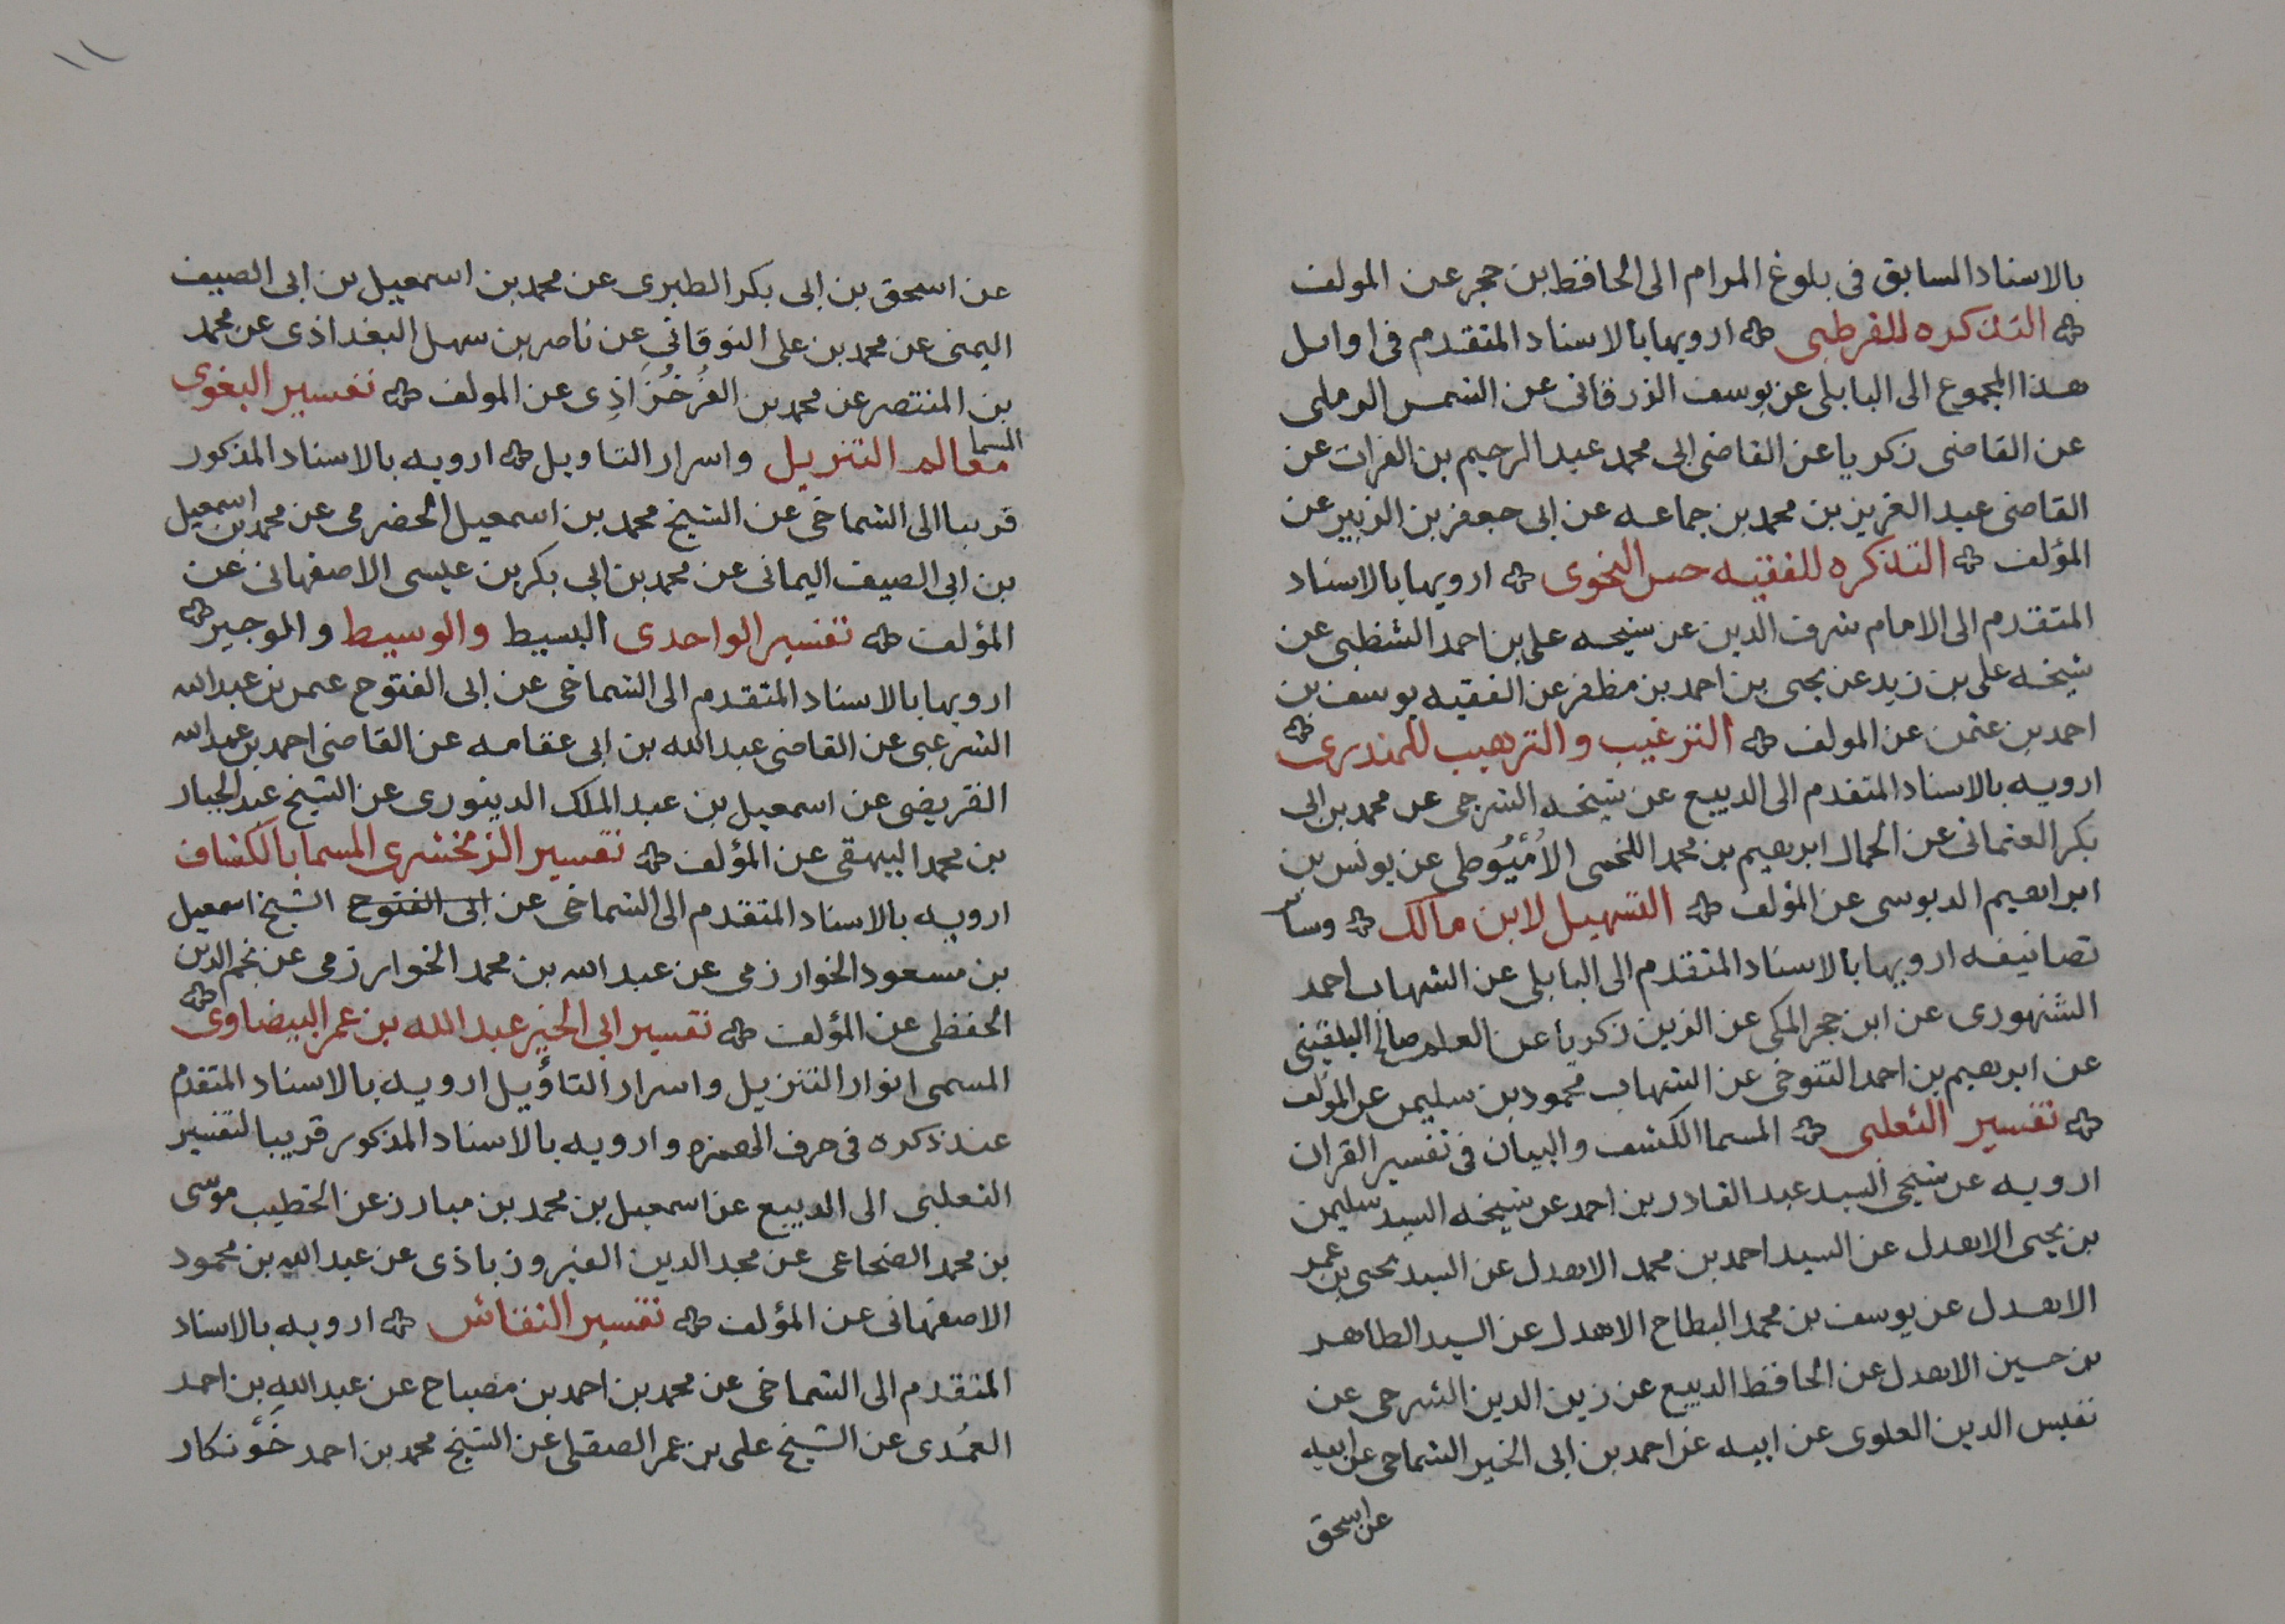 بالاسناد السابق فى بلوغ المرام الى الحافظ بن حجر عن المولف
التذكره للقرطبى ارويها بالاسناد المتقدم فى اوايل
هذا المجموع الى البابلى عن يوسف الزرقانى عن الشمس الرملى
عن القاضى زكريا عن القاضى ابى محمد عبد الرحيم بن الفرات عن
القاضى عبد العزيز بن محمد بن جماعه عن ابى جعفر بن الزبير عن
المؤلف التذكره للفقيه حسن النحوى ارويها بالاسناد
المتقدم الى الامام شرف الدين عن شيخه على بن احمد الشظبى عن
شيخه على بن زيد عن يحيى بن احمد بن مظفر عن الفقيه يوسف بن
احمد بن عثمن عن المولف الترغيب والترهيب للمنذرى
ارويه بالاسناد المتقدم الى الديبع عن شيخه الشرجى عن محمد بن ابى
بكر العثمانى عن الجمال ابرهيم بن محمد اللخمى الأُمْيُوطى عن يونس بن
ابراهيم الدبوسى عن المؤلف التسهيل لابن مالك وسائر
تصانيفه ارويها بالاسناد المتقدم الى البابلى عن الشهاب احمد
الشنهورى عن ابن حجر المكى عن الزين زكريا عن العلم صالح البلقينى
عن ابرهيم بن احمد التنوخى عن الشهاب محمود بن سليمن عن المؤلف
تفسير الثعلبى المسما الكشف والبيان فى تفسير القران
ارويه عن شيخى السيد عبد القادر بن احمد عن شيخه السيد سليمن
بن يحيى الاهدل عن السيد احمد بن محمد الاهدل عن السيد يحيى بن عمر
الاهدل عن يوسف بن محمد البطاح الاهدل عن السيد الطاهر
بن حسين الاهدل عن الحافظ الديبع عن زين الدين الشرجى عن
نفيس الدين العلوى عن ابيه عن احمد بن ابى الخير الشماخى عن ابيه
عن اسحق
١١
عن اسحق بن ابى بكر الطبرى عن محمد بن اسمعيل بن ابى الصيف
اليمنى عن محمد بن على النوقانى عن ناصر بن سهل البغداذى عن محمد
بن المنتصر عن محمد بن الفُرخُزاذِى عن المولف تفسير البغوى
المسما معالم التنزيل واسرار التاويل ارويه بالاسناد المذكور
قريبا الى الشماخى عن الشيخ محمد بن اسمعيل الحضرمى عن محمد بن اسمعيل
بن ابى الصيف اليمانى عن محمد بن ابى بكر بن عيسى الاصفهانى عن
المؤلف تفسير الواحدى البسيط والوسيط والوجيز
ارويها بالاسناد المتقدم الى الشماخى عن ابى الفتوح عمر بن عبد الله
الشرعبى عن القاضى عبد الله بن ابى عقامه عن القاضى احمد بن عبد الله
القريضى عن اسمعيل بن عبد الملك الدينورى عن الشيخ عبد الجبار
بن محمد البيهقى عن المؤلف تفسير الزمخشرى المسما بالكشاف
ارويه بالاسناد المتقدم الى الشماخى عن ابى الفتوح الشيخ اسمعيل
بن مسعود الخوارزمى عن عبد الله بن محمد الخوارزمى عن نجم الدين
الحفظى عن المؤلف تفسير ابى الخير عبد الله بن عمر البيضاوى
المسمى انوار التنزيل واسرار التاؤيل ارويه بالاسناد المتقدم
عند ذكره فى حرف الهمزه وارويه بالاسناد المذكور قريبا لتفسير
الثعلبى الى الديبع عن اسمعيل بن محمد بن مبارز عن الخطيب موسى
بن محمد الضجاعى عن مجد الدين الفيروزباذى عن عبد الله بن محمود
الاصفهانى عن المؤلف تفسير النقاش ارويه بالاسناد
المتقدم الى الشماخى عن محمد بن احمد بن مصباح عن عبد الله بن احمد
العُمْدى عن الشيخ على بن عمر الصقلى عن الشيخ محمد بن احمد خونكار